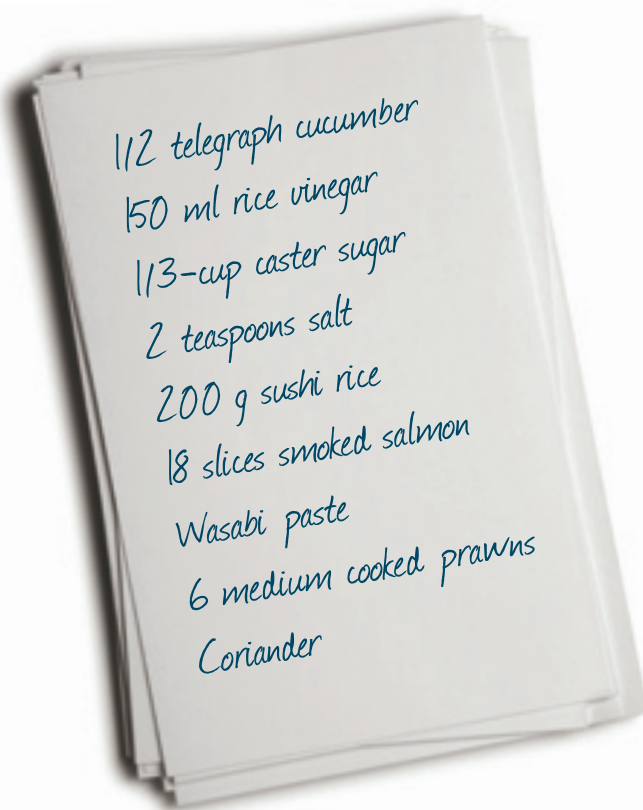 1/2 telegraph cucumber
150 ml rice vinegar
1/3-cup caster sugar
2 teaspoons salt
200 g sushi rice
18 slices smoked salmon
Wasabi paste
6 medium cooked prawns
Coriander